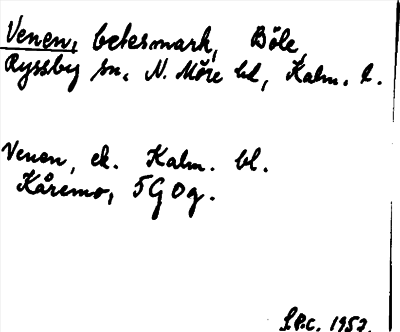 Venen, betesmark, Böle,
Ryssby sn, N. Möre hd, Kalm. l.
Venen, ek. Kalm. bl.
Kåremo, 5G0g.
S.P.c. 1952.